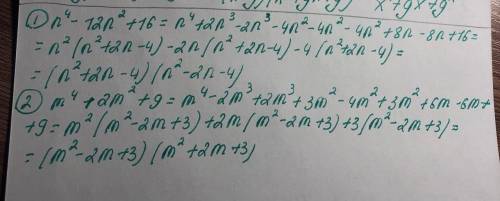 ① n⁴ - 12n² + 16 = n⁴ + 2n³ - 2n³ - 4n² - 4n² - 4n² + 8n - 8n + 16 =
= n² (n² + 2n - 4) - 2n (n² + 2n - 4) - 4 (n² + 2n - 4) =
= (n² + 2n - 4) (n² - 2n - 4)
② m⁴ + 2m² + 9 = m⁴ - 2m³ + 2m³ + 3m² - 4m² + 3m² + 6m - 6m +
+ 9 = m² (m² - 2m + 3) + 2m (m² - 2m + 3) + 3 (m² - 2m + 3) =
= (m² - 2m + 3) (m² + 2m + 3)